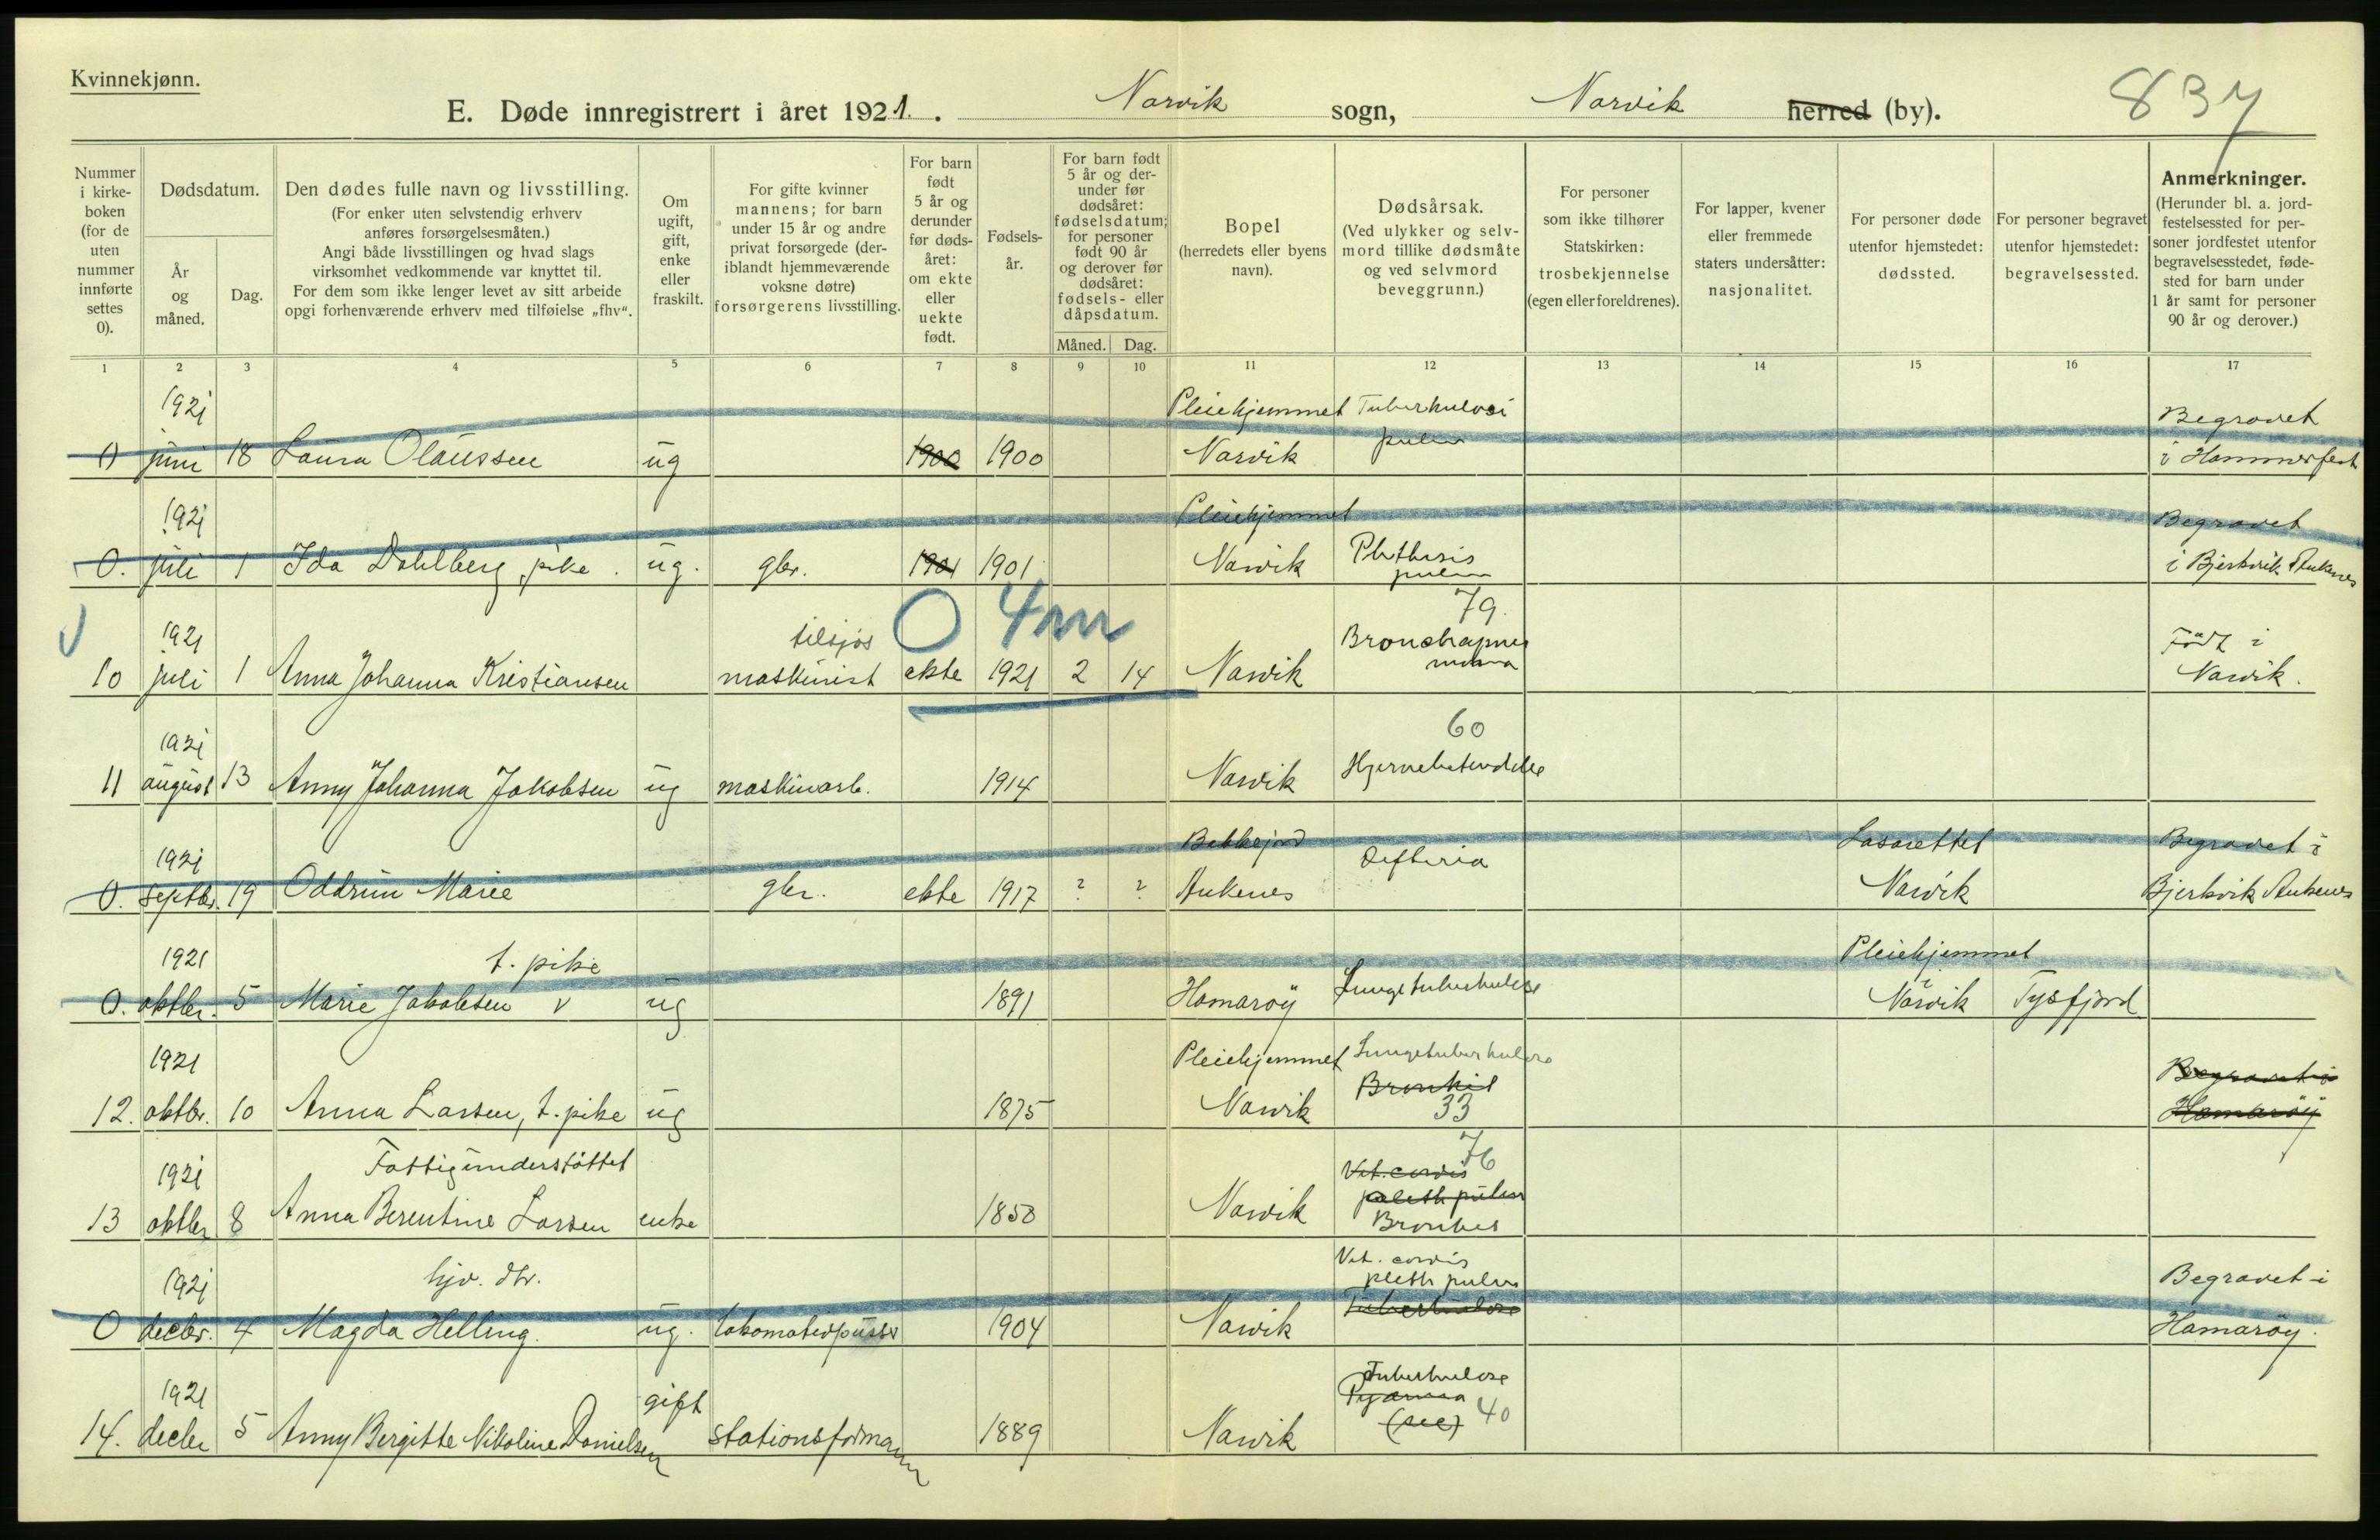 Kvinnekjønn.
E. Døde innregistrert i året 1921. Narvik sogn, Narvik herred (by).
837
Nummer i kirkeboken (for de uten nummer innførte settes 0).
Dødsdatum.
År og måned.
Dag.
Den dødes fulle navn og livsstilling.
(For enker uten selvstendig erhverv anføres forsørgelsesmåten.)
Angi både livsstillingen og hvad slags virksomhet vedkommende var knyttet til.
For dem som ikke lenger levet av sitt arbeide opgi forhenværende erhverv med tilføielse „fhv“.
Om ugift, gift, enke eller fraskilt.
For gifte kvinner mannens; for barn under 15 år og andre privat forsørgede (deriblandt hjemmeværende voksne døtre) forsørgerens livsstilling.
For barn født 5 år og derunder før dødsåret: om ekte eller uekte født.
Fødselsår.
For barn født 5 år og derunder før dødsåret: fødselsdatum; for personer født 90 år og derover før dødsåret: fødsels- eller dåpsdatum.
Måned. Dag.
Bopel (herredets eller byens navn).
Dødsårsak.
(Ved ulykker og selvmord tillike dødsmåte og ved selvmord beveggrunn.)
For personer som ikke tilhører Statskirken: trosbekjennelse (egen eller foreldrenes).
For lapper, kvener eller fremmede staters undersåtter: nasjonalitet.
For personer døde utenfor hjemstedet: dødssted.
For personer begravet utenfor hjemstedet: begravelsessted.
Anmerkninger.
(Herunder bl. a. jordfestelsessted for personer jordfestet utenfor begravelsesstedet, fødested for barn under 1 år samt for personer 90 år og derover.)
1 2 3 4 5 6 7 8 9 10 11 12 13 14 15 16 17
1921 Pleiehjemmet Tuberkulosi Begravet
0 juni 18 Laura Olaussen ug 1900 1900 Narvik pulm i Hammerfest
1921 Pleiehjemmet Begravet
0. juli 1 Ida Dahlberg, pike. ug. gbr. 1901 1901 Narvik Phthisis pulm i Bjerkvik Ankenes
0 4 m 79.
1921 tilsjøs Bronchopneu Født i
10 juli 1 Anna Johanna Kristiansen maskinist ekte 1921 2 14 Narvik monia Narvik.
1921 60
11 august 13 Anny Johanna Jakobsen ug maskinarb. 1914 Narvik Hjernebetendelse
1921 Bekkejord Difteria Lasarettet Begravet i
0. septbr. 19 Oddrun Marie gbr. ekte 1917 ? ? Ankenes Narvik Bjerkvik Ankenes
1921 t. pike Pleiehjemmet
0. oktbr. 5 Marie Jakobsen v ug 1891 Hamarøy Lungetuberkulose i Narvik Tysfjord
1921 Pleiehjemmet Lungetuberkulose Begravet i
12. oktbr. 10 Anna Larsen, t. pike ug 1875 Narvik Bronkit 33 Hamarøy
1921 Fattigunderstøttet Vit. cordis 76
13 oktbr 8 Anna Berentine Larsen enke 1850 Narvik pleth pulm
Bronkit
1921 hjv. dtr. Vit. cordis pleth pulm Begravet i
0 decbr. 4 Magda Helling. ug. lokomotivpusser 1904 Narvik Tuberkulose Hamarøy.
1921 gift Tuberkulose
14. decbr 5 Anny Bergitte Nikoline Danielsen stationsformann 1889 Narvik Pyaemia 40